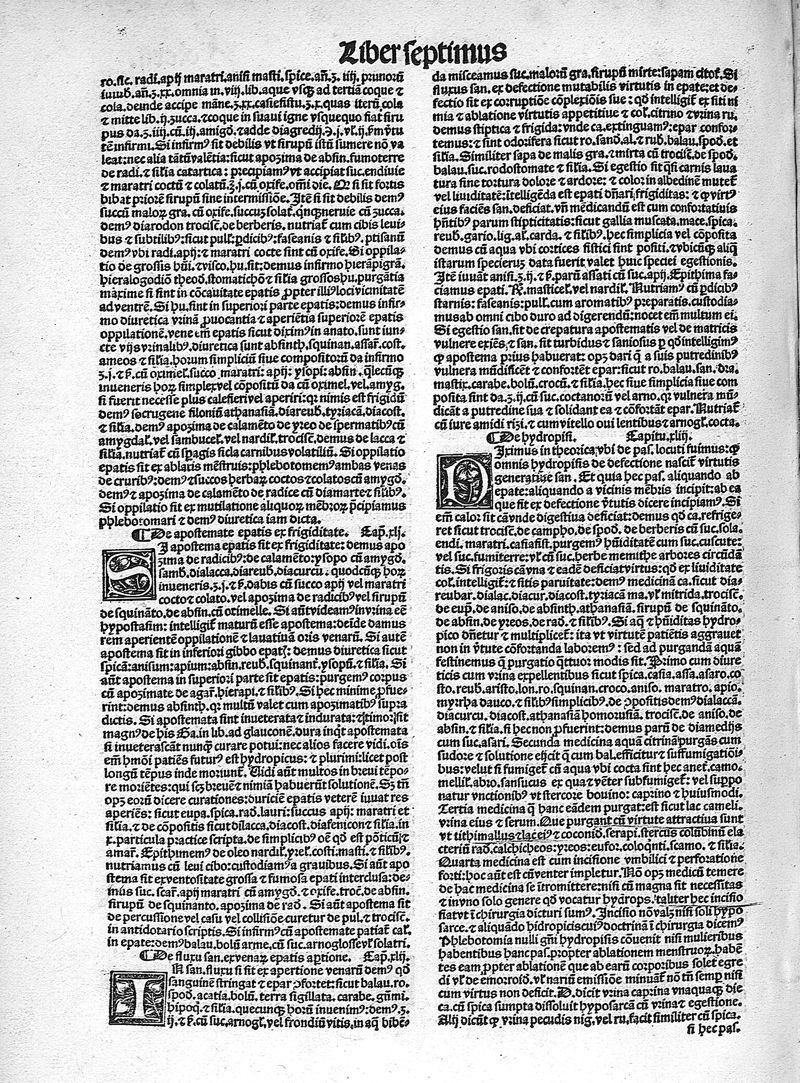 Liber septimus
ro. fle. radi. apij maratri. anisi masti. spice. añ. ʒ. iiij. prunorū
iuiub. añ. ʒ. xx. omnia in. viij. lib. aque vsqʒ ad tertiā coque ⁊
cola. deinde accipe māne. ʒ. xx. cassiefistu. ʒ. x. quas iterū cola
⁊ mitte lib. ij. zucca. ⁊ coque in suaui igne vsquequo fiat siru
pus da. ʒ. iiij. cū. iij. amigd. ⁊ adde diagredij.
tem̄ infirmi. Si infirmꝰ sit debilis vt sirupū istū sumere nō va
leat: nec alia tātū valētia: sicut apozima de absin. fumoterre
de radi. ⁊ silia catartica: precipiamꝰ vt accipiat suc. endiuie
⁊ maratri coctū ⁊ colatū cū. oxise. omni die. si sit fortis
bibat priorē sirupū sine intermissiōe. Itē si sit debilis demꝰ
succū malorum gra. cū oxise. succū solat. cū zucca.
demꝰ diarodon trocisc. de berberis. nutriat̄ cum cibis leui
bus ⁊ subtilibꝰ: sicut pull. pdicibꝰ: faseanis ⁊ silibꝰ. ptisanū
demꝰ vbi radi. apij: ⁊ maratri cocte sint cū oxise. Si oppila-
tio de grossis hūi. ⁊ visco. hu. sit: demus infirmo hierapigrā.
hieralogodiō theod. stomathicō ⁊ silia grossos hu. purgātia
maxime si sint in cōcauitate epatis propter illiꝰ loci vicinitatē
ad ventrē. Si hu. sint in superiori parte epatis: demus infir-
mo diuretica vrinā prouocantia ⁊ aperiētia superiorē epatis
oppilationē. vene em̄ epatis sicut diximꝰ in anato. sunt iun-
cte vijs vrinalibꝰ. diuretica sunt absinth. squinan. assar. cost.
ameos ⁊ silia. horum simpliciū siue compositorū da infirmo
ʒ. i. ⁊ cū oximel. succo maratri: apij: ysopi: absin.
inueneris horum simplex vel cōpositū da cū oximel. vel. amyg.
si fuerit necesse plus calefieri vel aperiri: nimis est frigidū
demꝰ socrugene filoniū athanasiā. diareub. tyriacā. diacost.
⁊ silia. demꝰ apozima de calamēto de yreo de spermatibꝰ cū
amygdal. vel sambucel. vel nardil. trocisc. demus de lacca ⁊
silia. nutriat̄ cū spagis sicla carnibus volatiliū. Si oppilatio
epatis sit ex ablatis mēstruis: phlebotomemꝰ ambas venas
de cruribꝰ: demꝰ ⁊ succos herbarum coctos ⁊ colatos cū amygd.
demꝰ ⁊ apozima de calamēto de radice cū diamarte ⁊ silibꝰ.
Si oppilatio sit ex mutilatione aliquorum mēbrorum pcipiamus
phlebotomari ⁊ demꝰ diuretica iam dicta.
De apostemate epatis ex frigiditate. Cap. xlj.
SI apostema epatis sit ex frigiditate: demus apo
zima de radicibꝰ: de calamēto: ysopo cū amygd.
samb. dialacca. diareub. diacurcu. quodcūqʒ horum
inueneris ʒ. i. ⁊ dabis cū succo apij vel maratri
cocto ⁊ colato. vel apozima de radicibꝰ vel sirupū
de squināto. de absin. cū otimelle. Si aūt videam̄ in vrina eē
hypostasim: intelligit̄ maturū esse apostema: deīde damus
rem aperientē oppilationē ⁊ lauatiuā oris venarū. Si autē
apostema sit in inferiori gibbo epatis: demus diuretica sicut
spicā: anisum: apium: absin. reub. squinant. ysopū. ⁊ silia. Si
aūt apostema in superiori parte sit epatis: purgem̄ corpus
cū apozimate de agar. hierapi. ⁊ silibꝰ. Si hec minime pfue-
rint: demus absinth. multū valet cum apozimatibꝰ supra-
dictis. Si apostemata sint inueterata ⁊ indurata: timorum sit
magnꝰ de his Ga. in lib. ad glauconē. dura inqt apostemata
si inueterascāt nunqʒ curare potui: nec alios facere vidi. oīs
em̄ hmōi patiēs futurꝰ est hydropicus: ⁊ plurimi: licet post
longū tēpus inde moriunt̄. Uidi aūt multos in breui tēpo-
re moriētes: qui breuē ⁊ nimiā habuerūt solutionē. Sʒ tn̄
opʒ eorū dicere curationes: duriciē epatis veterē iuuat res
aperiēs: sicut eupa. spica. rad. lauri: succus apij: maratri et
silia. ⁊ de cōpositis sicut dilacca. diacost. diafenicon ⁊ silia. in
x. particula practice scripta. de simplicibꝰ oē est ponticū ⁊
amar. Epithimemꝰ de oleo nardil. yrel. costi. masti. ⁊ silibꝰ.
nutriamus cū leui cibo: custodiam̄ a grauibus. Si aūt apo
stema sit ex ventositate grossa ⁊ fumosa epati interclusa: de-
mus suc. scar. apij maratri cū amygd. ⁊ oxise. troc. de absin.
sirupū de squinanto. apozima de rad. Si aūt apostema sit
de percussione vel casu vel collisiōe curetur de pul. ⁊ trocisc.
in antidotario scriptis. Si infirmꝰ cū apostemate patiat̄ cal.
in epate: demꝰ balau. bolū arme. cū suc. arnoglosse vel solatri.
De fluxu san. ex venarum epatis aptione. Cap. xlij.
IN san. fluxu si sit ex apertione venarū demꝰ
sanguinē stringat ⁊ epar pfortet: sicut balau. ro.
spod. acatia. bolū. terra sigillata. carabe. gūmi.
hipoq. ⁊ silia. quecunqʒ horū inuenimꝰ: demꝰ. ʒ.
ij. ⁊ cū suc. arnogl. vel frondiū vitis. in aq bibē-
da misceamus suc. malorū gra. sirupū mirte: sapam citol. Si
fluxus san. ex defectione mutabilis virtutis in epate: et de-
fectio sit ex corruptiōe cōplexiōis sue: intelligit̄ ex siti ni
mia ⁊ ablatione virtutis appetitiue ⁊ col. citrino ⁊ vrina ru.
demus stiptica ⁊ frigida: vnde ca. extinguam̄: epar confor-
temus: ⁊ sint odorifera sicut ro. sand. al. ⁊ rub. balau. spod. et
silia. Similiter sapa de malis gra. ⁊ mirta cū trocisc. de spod.
balau. suc. rodostomate ⁊ silia. Si egestio sit qsi carnis laua
tura sine tortura dolore ⁊ ardore: ⁊ color in albedinē mutet̄
vel liuiditatē: itelligēda est epati dn̄ari. frigiditas: ⁊ virtꝰ
eius faciēs san. deficiat. vn̄ medicandū est cum confortatiuis
hn̄tibꝰ parum stipticitatis: sicut gallia muscata. mace. spica.
reub. gario. lig. al. carda. ⁊ silibꝰ. hec simplicia vel cōposita
demus cū aqua vbi cortices fistici sint positi. ⁊ vbicūqʒ aliq
istarum specierum data fuerit valet huic speciei egestionis.
Itē iuuat anisi. ʒ. ij. ⁊ parū assati cū suc. apij. Epithima fa-
ciamus epati. masticel. vel nardil. Nutriamꝰ cū pdicibꝰ
starnis: faseanis: pull. cum aromatibꝰ preparatis. custodia-
mus ab omni cibo duro ad digerendū: nocet em̄ multum ei.
Si egestio san. sit de crepatura apostematis vel de matricis
vulnere exiēs ⁊ san. sit turbidus ⁊ saniosus p intelligim̄
apostema prius habuerat: opʒ dari a suis putredinibꝰ
vulnera mūdificet ⁊ confortēt epar: sicut ro. balau. san. dra.
mastix. carabe. bolū. crocū. ⁊ silia. hec siue simplicia siue com
posita sint da. ʒ. ij. cū suc. coctanorū vel arno. vulnera mū-
dicāt a putredine sua ⁊ solidant ea ⁊ cōfortāt epar. Nutriat̄
cū iure amidi rizi. ⁊ cum vitello oui lentibus ⁊ arnogl. cocta.
De hydropisi. Capitu. xliij.
DIximus in theorica, vbi de pas. locuti fuimus:
omnis hydropisis de defectione nascit̄ virtutis
generatiue san. Et quia hec pas. aliquando ab
epate: aliquando a vicinis mēbris incipit: ab ea
que fit ex defectione vtutis dicere incipiam̄. Si
em̄ calor sit cā vnde digestiua deficiat: demus qd ca. refrige-
ret sicut trocisc. de campho. de spod. de berberis cū suc. sola.
endi. maratri. cassiafist. purgem̄ hūiditatē cum suc. cuscute:
vel suc. fumiterre: vel cū suc. herbe memithe arbores circūdā
tis. Si frigoris cā vna ⁊ eadē deficiat virtus: ex liuiditate
col. intelligit̄: ⁊ sitis paruitate: demꝰ medicinā ca. sicut dia-
reubar. dialac. diacur. diacost. tyriacā ma. vel mitrida. trocisc.
de eup. de aniso. de absinth. athanasiā. sirupū de squināto.
de absin. de yreos. de rad. ⁊ silibꝰ. Si aq ⁊ hūiditas hydro-
pico dn̄etur ⁊ multiplicet̄: ita vt virtutē patiētis aggrauet
non in vtute cōfortanda laborem̄: sed ad purgandā aquā
festinemus purgatio qttuor modis sit. Primo cum diure
ticis cum vrina expellentibus sicut spica. casia. assa. asaro. co
sto. reub. aristo. lon. ro. squinan. croco. aniso. maratro. apio.
myrrha dauco. ⁊ silibꝰ simplicibꝰ. de cpositis demꝰ dialaccā.
diacurcu. diacost. athanasiā homozusiā. trocisc. de aniso. de
absin. ⁊ silia. si hec non pfuerint: demus parū de diamedijs
cum suc. asari. Secunda medicina aquā citrinā purgās cum
sudore ⁊ solutione ejicit cum bal. efficitur ⁊ suffumigatiōi-
bus: velut si fumiget̄ cū aqua vbi cocta sint hec anet. camo.
mellil. abro. sansucus ex qua ⁊ vēter subfumiget̄: vel suppo
natur vnctionibꝰ vt stercore bouino: caprino ⁊ huiusmodi.
Tertia medicina hanc eādem purgat: est sicut lac cameli.
vrina eius ⁊ serum. Que purgant cū virtute attractiua sunt
vt tithimallus ⁊ lac eiꝰ ⁊ coconid. serapi. stercus colūbinū ela
cteriū rad. calchicheos: yreos: eufor. coloqnti. scamo. ⁊ silia.
Quarta medicina est cum incisione vmbilici ⁊ perforatione
forti: hoc aūt est cū venter impletur. Nō opʒ medicū temere
de hac medicina se itromittere: nisi cū magna sit necessitas
⁊ in vno solo genere qd vocatur hydrops. taliter hec incisio
fiat vt i chirurgia dicturi sumꝰ. Incisio nō valʒ nisi soli hypo
sarce. ⁊ aliquādo hidropicis cuiꝰ doctrinā i chirurgia dicemꝰ
Phlebotomia nulli gn̄i hydropisis cōuenit nisi mulieribus
habentibus hanc pas. propter ablationem menstruorum. habē
tes eam propter ablationē que ab earū corporibus solet egre
di vel de emoroid. vel nariū emissiōe minuāt̄ nō tn̄ semp nisi
cum virtus non deficit. D. dicit vrina caprina vnaquaqʒ die
ca. cū spica sumpta dissoluit hyposarcā cū vrina ⁊ egestione.
Alij dicūt vrina pecudis nig. vel ru. facit similiter cū spica.
si hec pas.